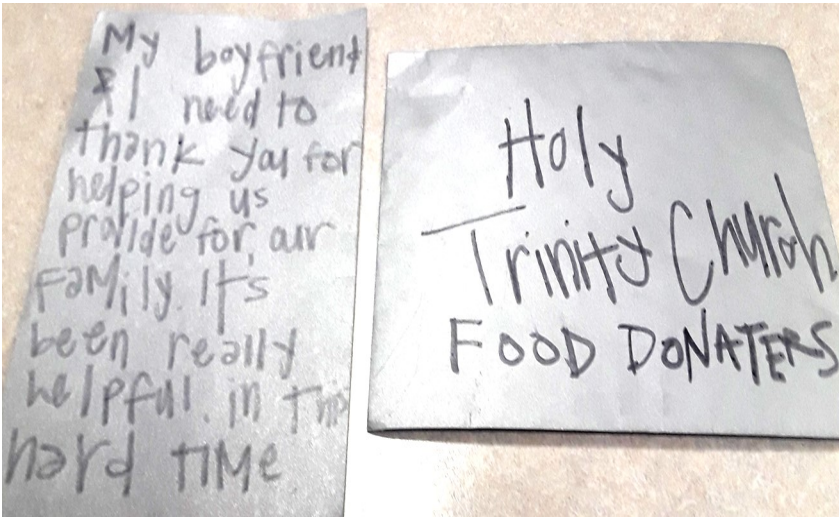 My boyfriend
& I need to
thank you for
helping us
provide for our
FAMily. It's
been really
helpful. in this
hard TIME
Holy
Trinity Church
FOOD DONATERS